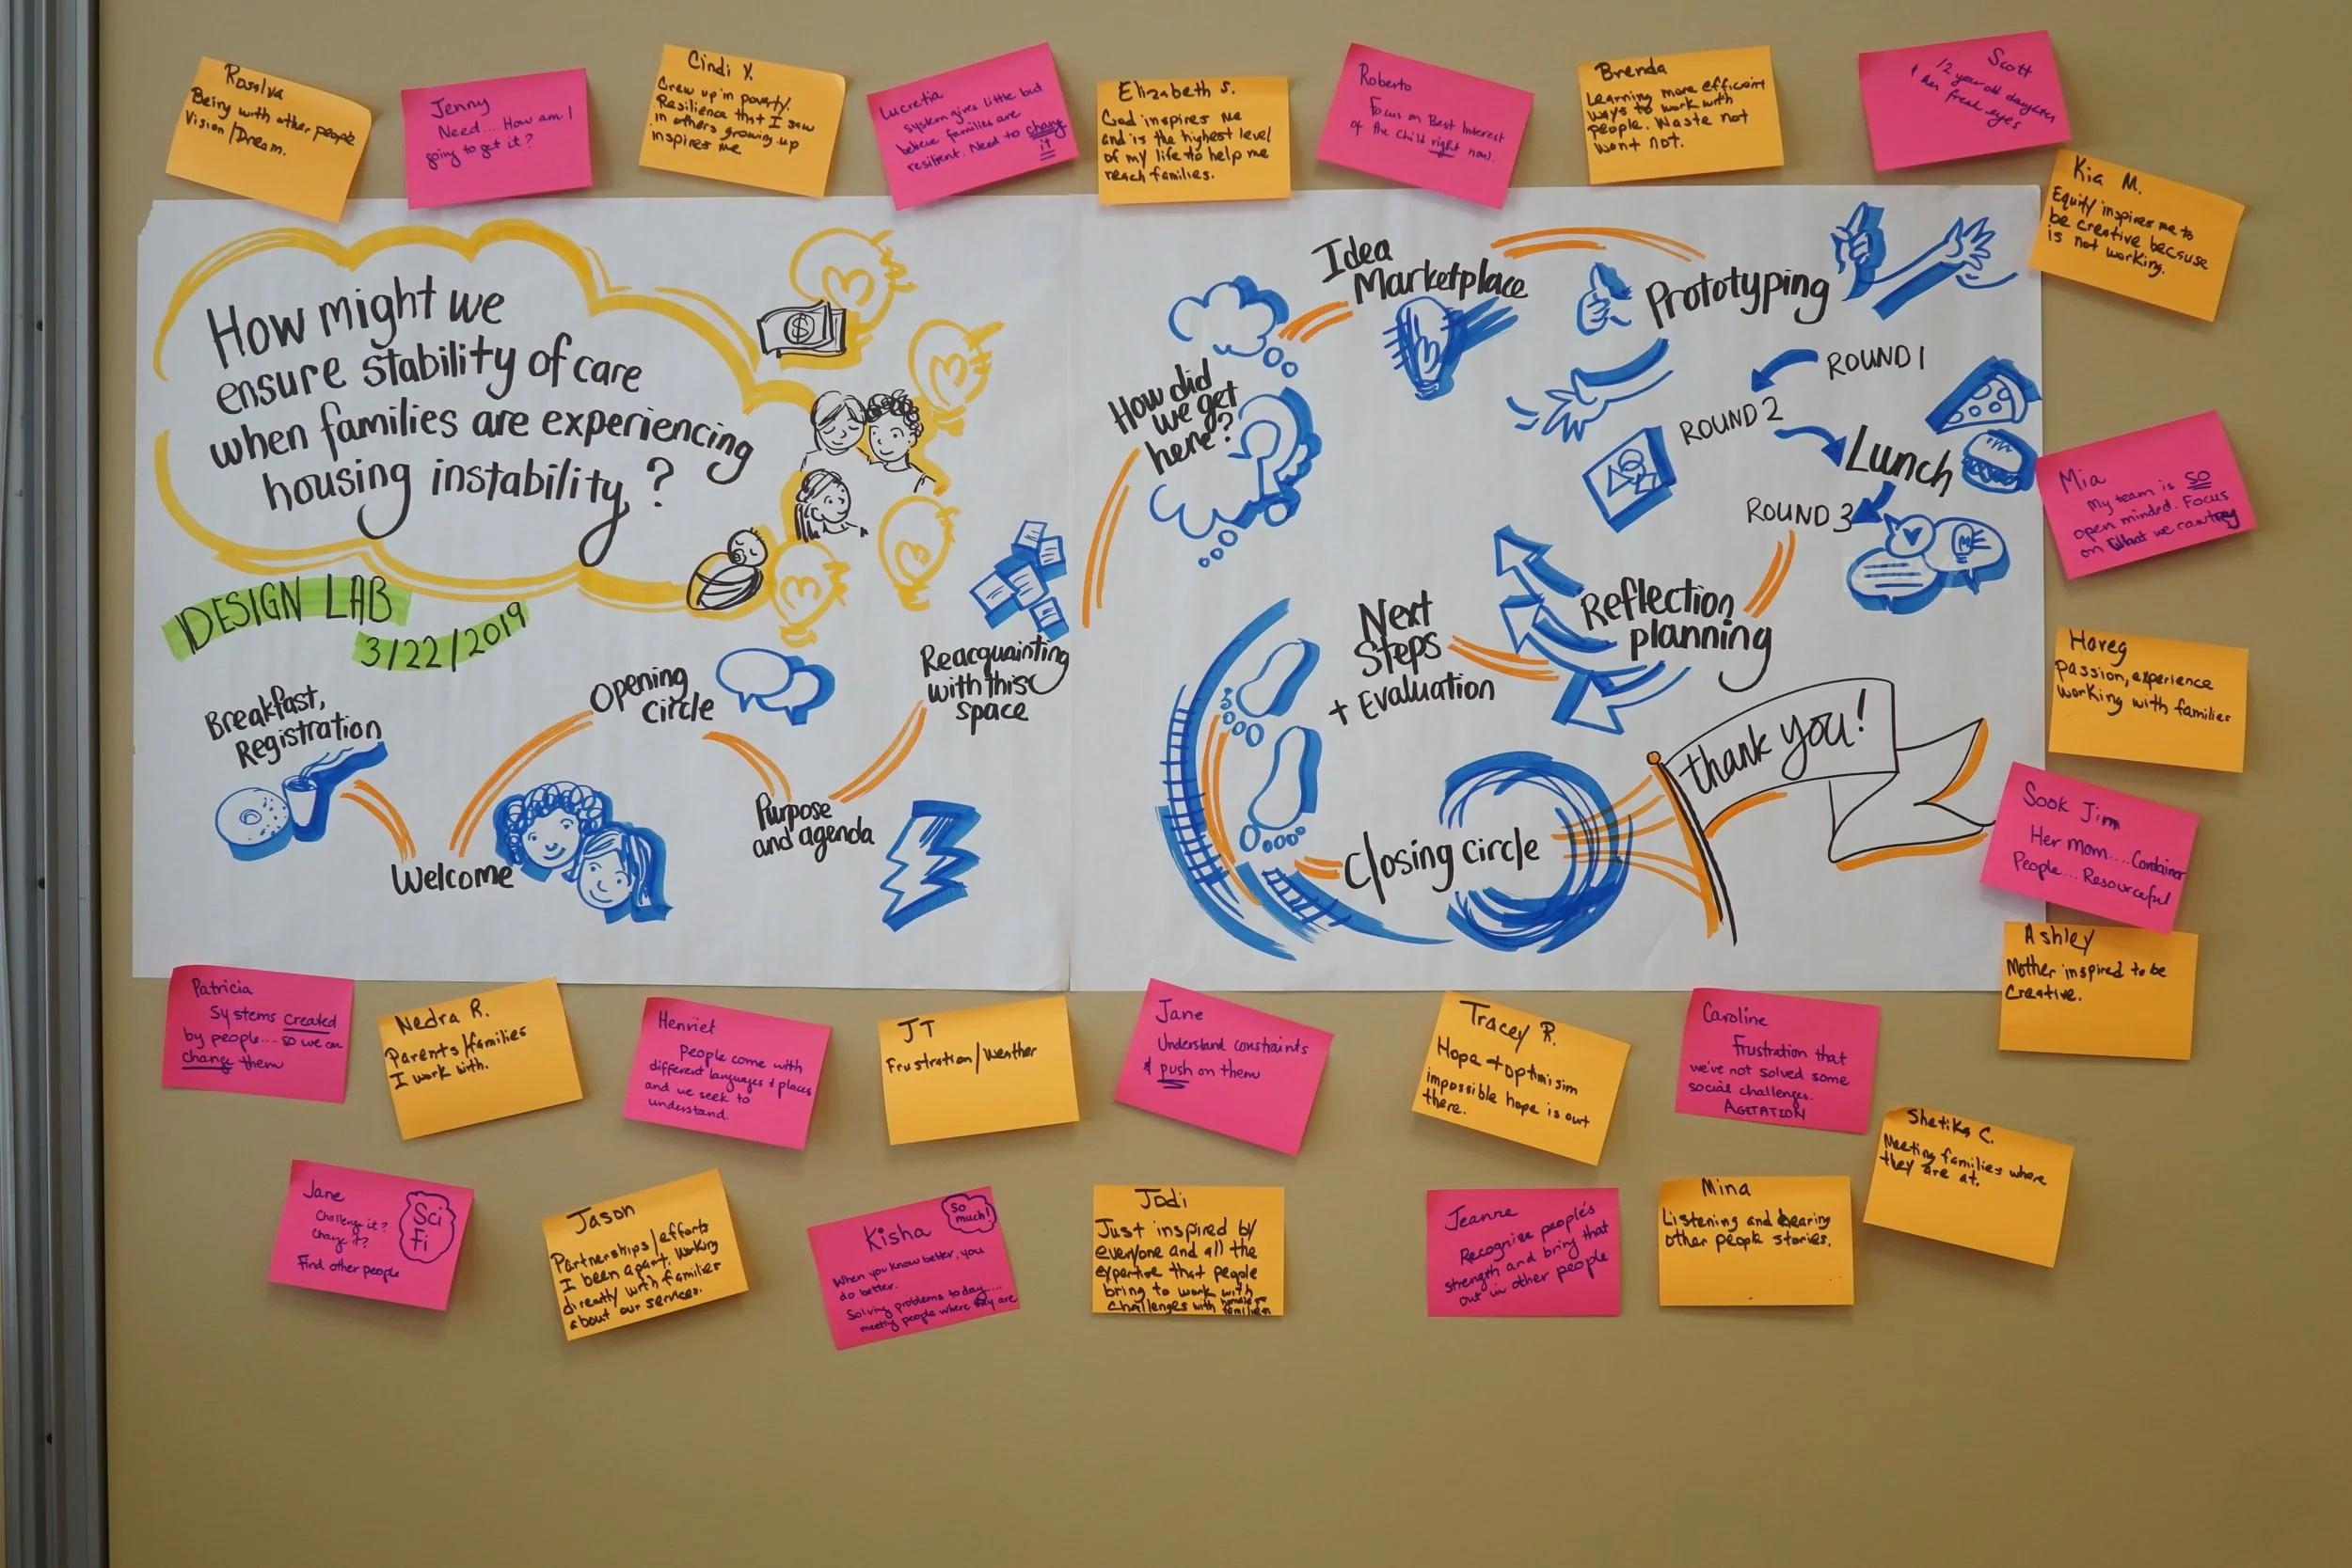 Rosalva
Being with other people
Vision/Dream.
Jenny
Need.... How am I
going to get it?
Cindi Y.
Grew up in poverty.
Resilience that I saw
in others growing up
inspires me
Lucretia
system gives little but
believe families are
resilient. Need to change
it
Elizabeth S.
God inspires me
and is the highest level
of my life to help me
reach families.
Roberto
Focus on Best Interest
of the Child right now.
Brenda
Learning more efficient
ways to work with
people. Waste not
want not.
Scott
12 year old daughter
& her fresh eyes
Kia M.
Equity inspires me to
be creative because
is not working.
Mia
My team is SO
open minded. Focus
on what we can try
Hareg
passion, experience
working with families
Sook Jim
Her mom.... Container
People... Resourceful
Ashley
Mother inspired to be
Creative.
How might we
ensure stability of care
when families are experiencing
housing instability?
DESIGN LAB
3/22/2019
Breakfast,
Registration
Welcome
Opening
circle
Purpose
and agenda
Reacquainting
with this
space
How did
we get
here?
Idea
Marketplace
Prototyping
ROUND 1
ROUND 2
Lunch
ROUND 3
Reflection
planning
Next
Steps
+ Evaluation
Closing circle
thank you!
Patricia
Systems created
by people.... so we can
change them
Nedra R.
Parents/families
I work with.
Henriet
People come with
different languages & places
and we seek to
understand.
JT
Frustration/Weather
Jane
Understand constraints
& push on them
Tracey R.
Hope + optimisim
impossible hope is out
there.
Caroline
Frustration that
we've not solved some
social challenges.
AGITATION
Shetika C.
Meeting families where
they are at.
Jane
Challenge it?
Change it?
Find other people
Sci
Fi
Jason
Partnerships/efforts
I been apart. Working
directly with families
about our services.
Kisha
So
much!
When you know better, you
do better.
Solving problems today....
meeting people where they are
Jodi
Just inspired by
everyone and all the
expertise that people
bring to work with
challenges with homeless
families
Jeanne
Recognize people's
strength and bring that
out in other people
Mina
Listening and hearing
other people stories.